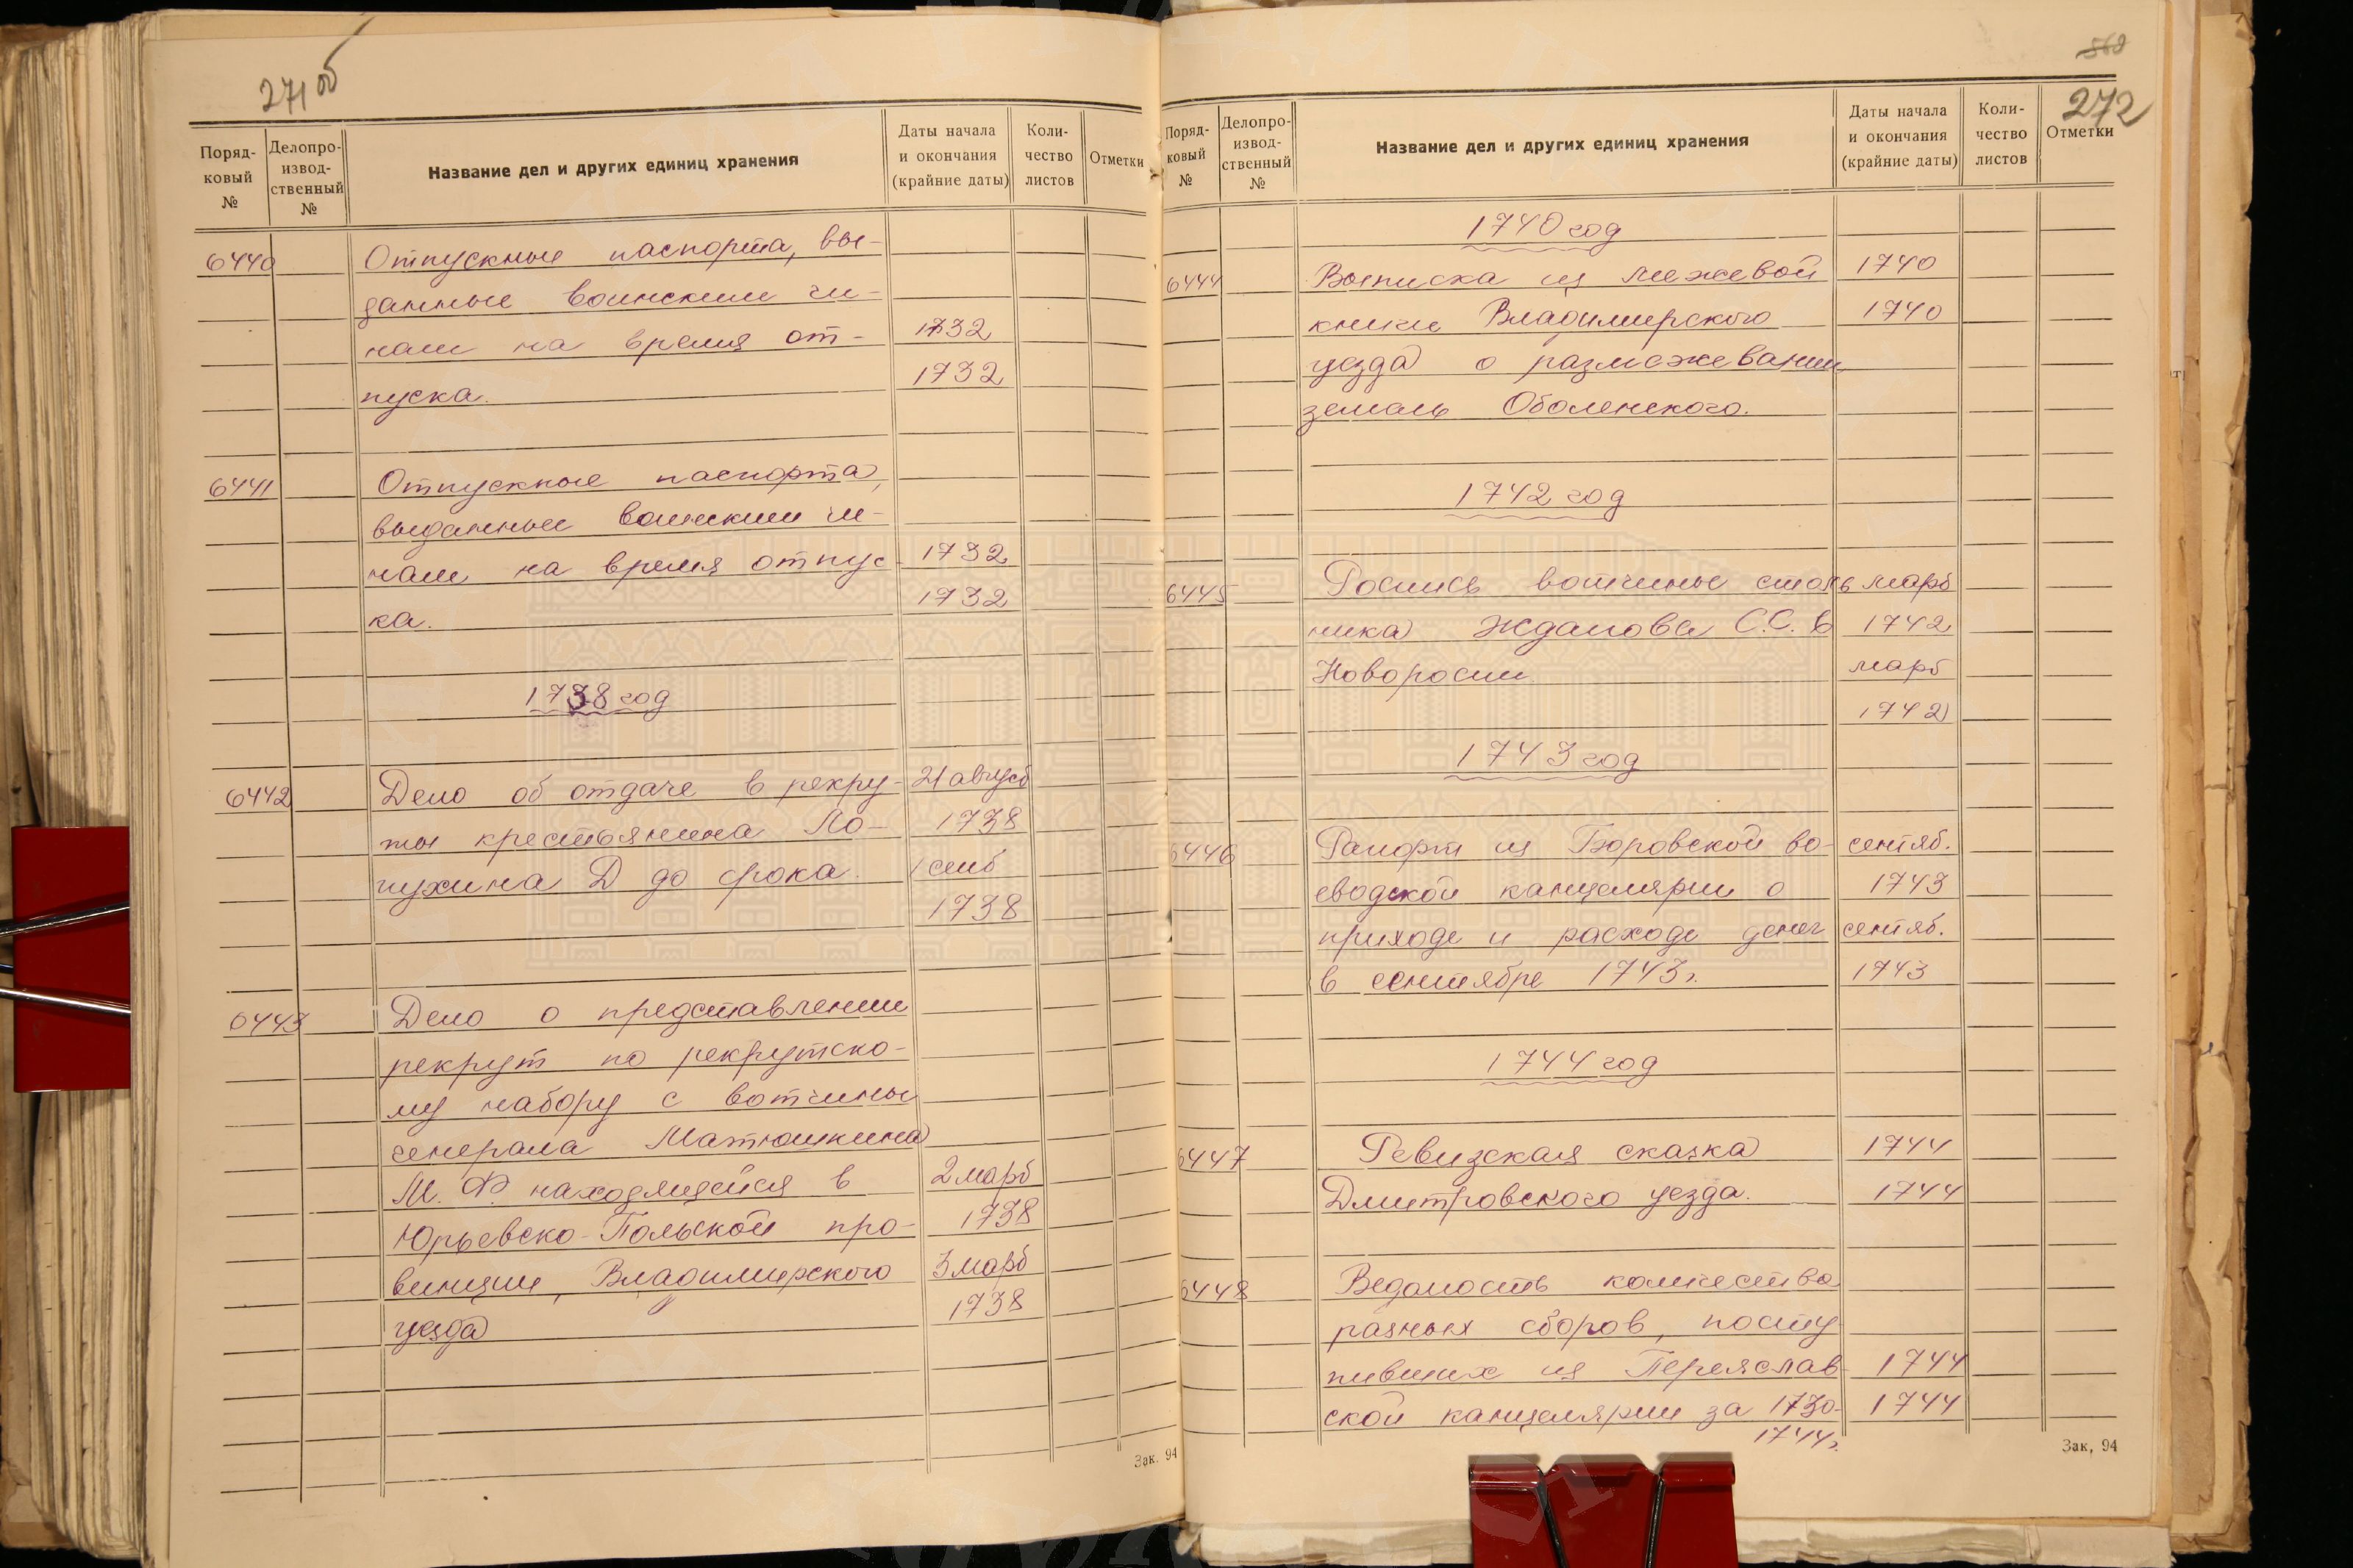 271 об
Поряд-
ковый
№
Делопро-
извод-
ственный
№
Название дел и других единиц хранения
Даты начала
и окончания
(крайние даты)
Коли-
чество
листов
Отметки
6440 Отпускные паспорта, вы-
данные воинским чи-
нам на время от- 1732
пуска. 1732
6441 Отпускные паспорта,
выданные воинским чи-
нам на время отпус- 1732
ка. 1732
1738 год
6442 Дело об отдаче в рекру- 21 августа
ты крестьянина Ло- 1738
пухина Д до срока. 1 сент
1738
6443 Дело о представлении
рекрут по рекрутско-
му набору с вотчины
генерала Матюшкина
М. Ф. находящейся в 2 марта
Юрьевско-Польской про- 1738
винции, Владимирского 3 марта
уезда 1738
Зак. 94
568
272
Поряд-
ковый
№
Делопро-
извод-
ственный
№
Название дел и других единиц хранения
Даты начала
и окончания
(крайние даты)
Коли-
чество
листов
Отметки
1740 год
6444 Выписка из межевой 1740
книги Владимирского 1740
уезда о размежевании
земель Оболенского.
1742 год
6445 Роспись вотчины столь марта
ника Жданова С.С. в 1742
Новоросии марта
1742
1743 год
6446 Рапорт из Боровской во- сентяб.
еводской канцелярии о 1743
приходе и расходе денег сентяб.
в сентябре 1743 г. 1743
1744 год
6447 Ревизская сказка 1744
Дмитровского уезда. 1744
6448 Ведомость количества
разных сборов, посту
пивших из Переяслав- 1744
ской канцелярии за 1730- 1744
1744 г.
Зак, 94